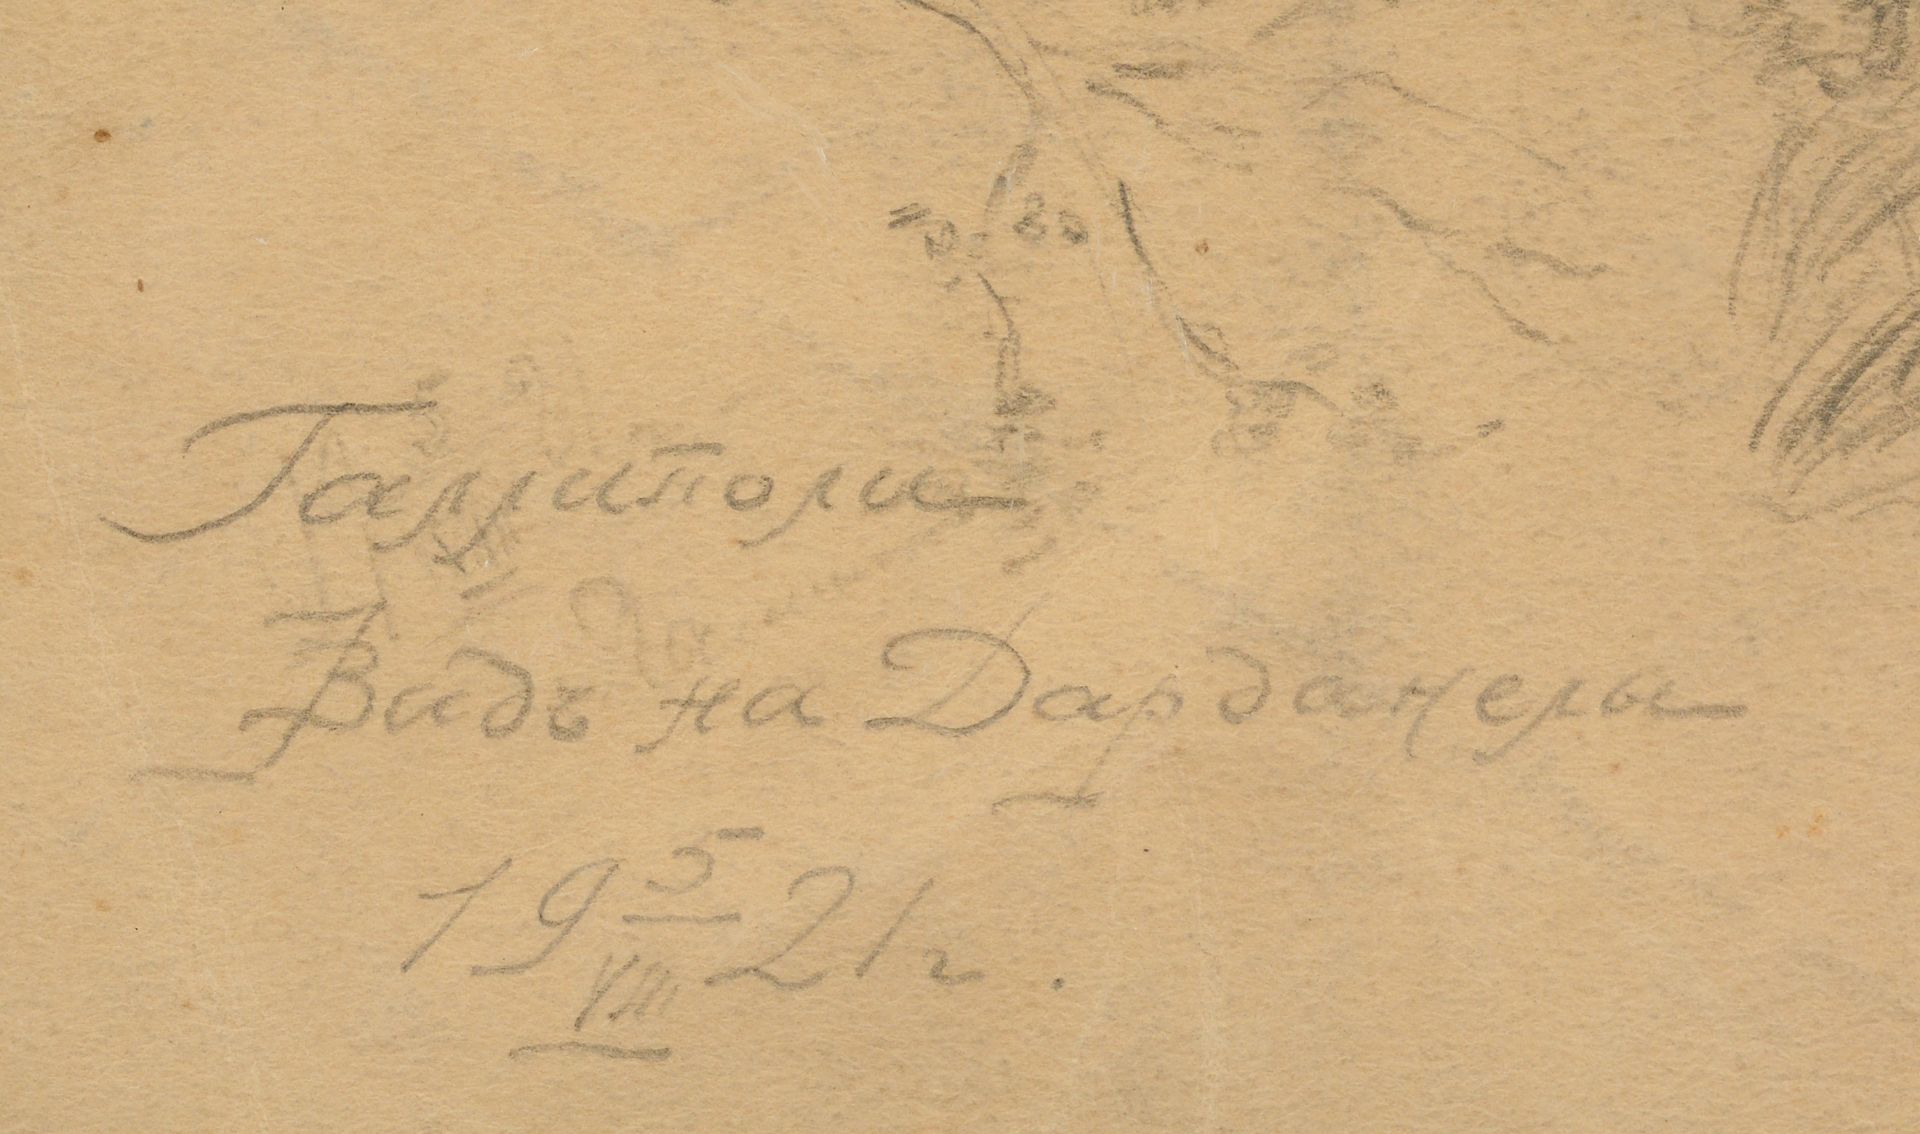 Галлиполи
Видъ на Дарданелы
19 5/VIII 21 г.